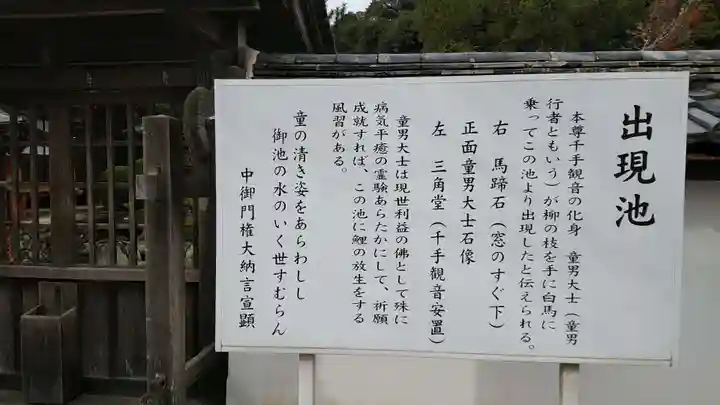 出現池
本尊千手観音の化身　童男大士（童男
行者ともいう）が柳の枝を手に白馬に
乗ってこの池より出現したと伝えられる。
右　馬蹄石（窓のすぐ下）
正面童男大士石像
左　三角堂（千手観音安置）
童男大士は現世利益の佛として殊に
病気平癒の霊験あらたかにして、祈願
成就すれば、この池に鯉の放生をする
風習がある。
童の清き姿をあらわしし
御池の水のいく世すむらん
中御門権大納言宣顕